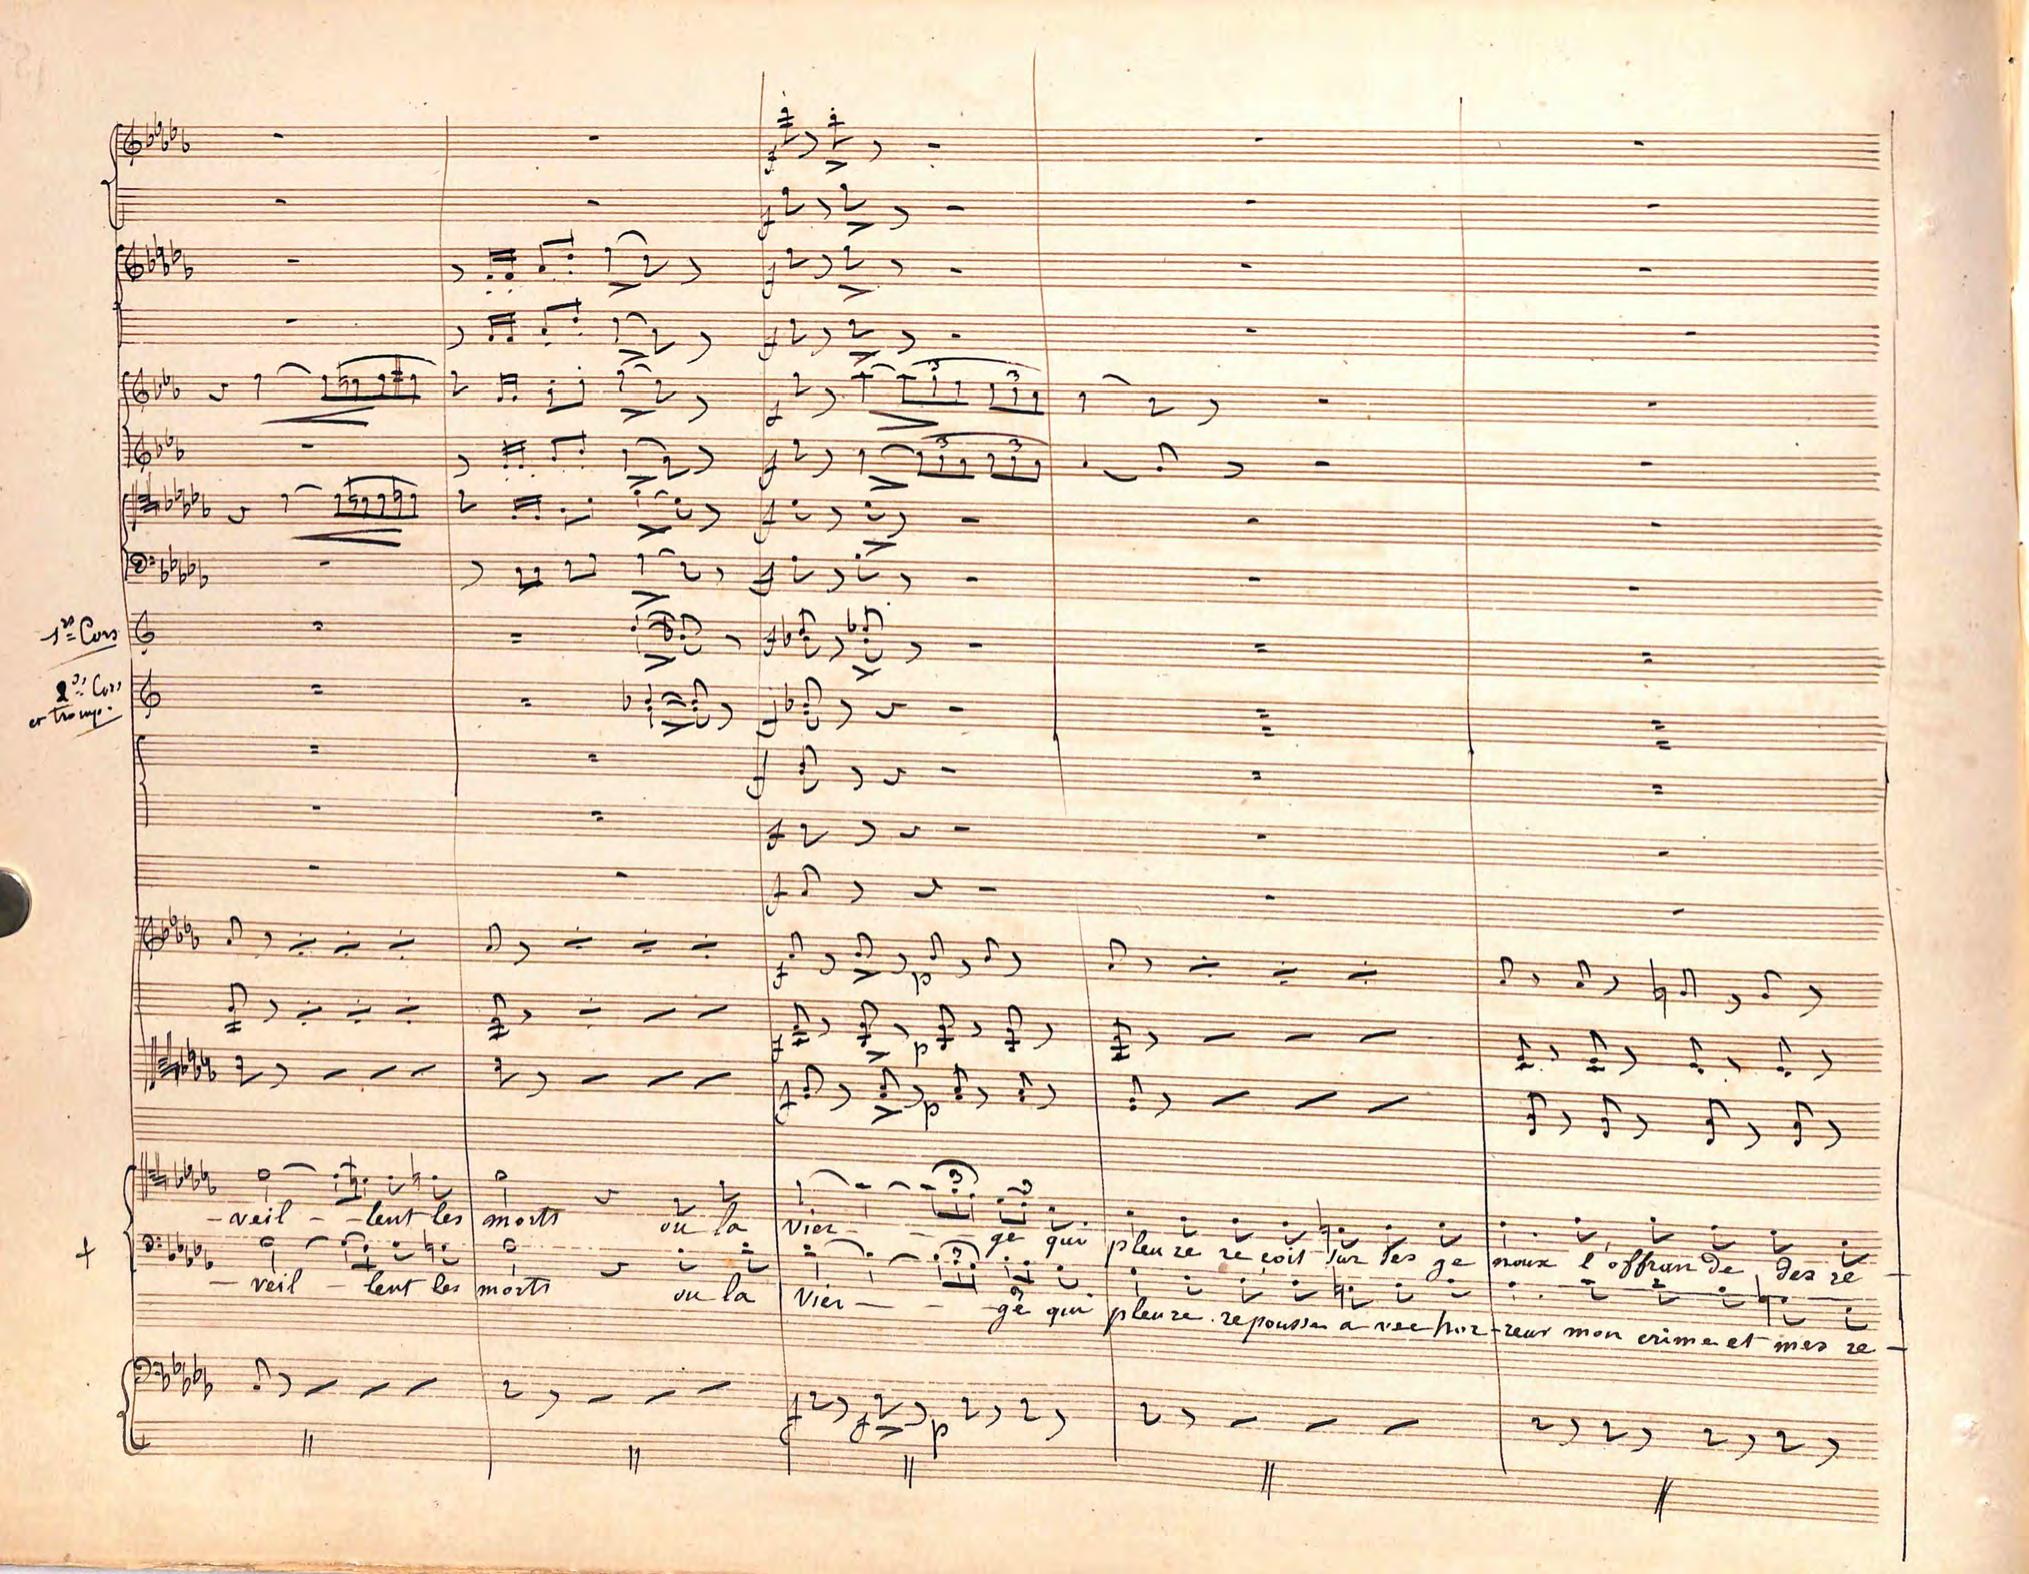 1rs Cors
2ds Cors
et tromp.
f
f
f
f
3 3
f
3 3
f
f
f
f
f
f
f
f
f p
f p
f p
3 3
- veil - - lent les morts ou la vier - - - ge qui pleure reçoit sur ses ge noux l'offrande des re -
3
+
- veil - lent les morts ou la vier - - - ge qui pleure repousse a vec hor-reur mon crime et mes re -
f f p